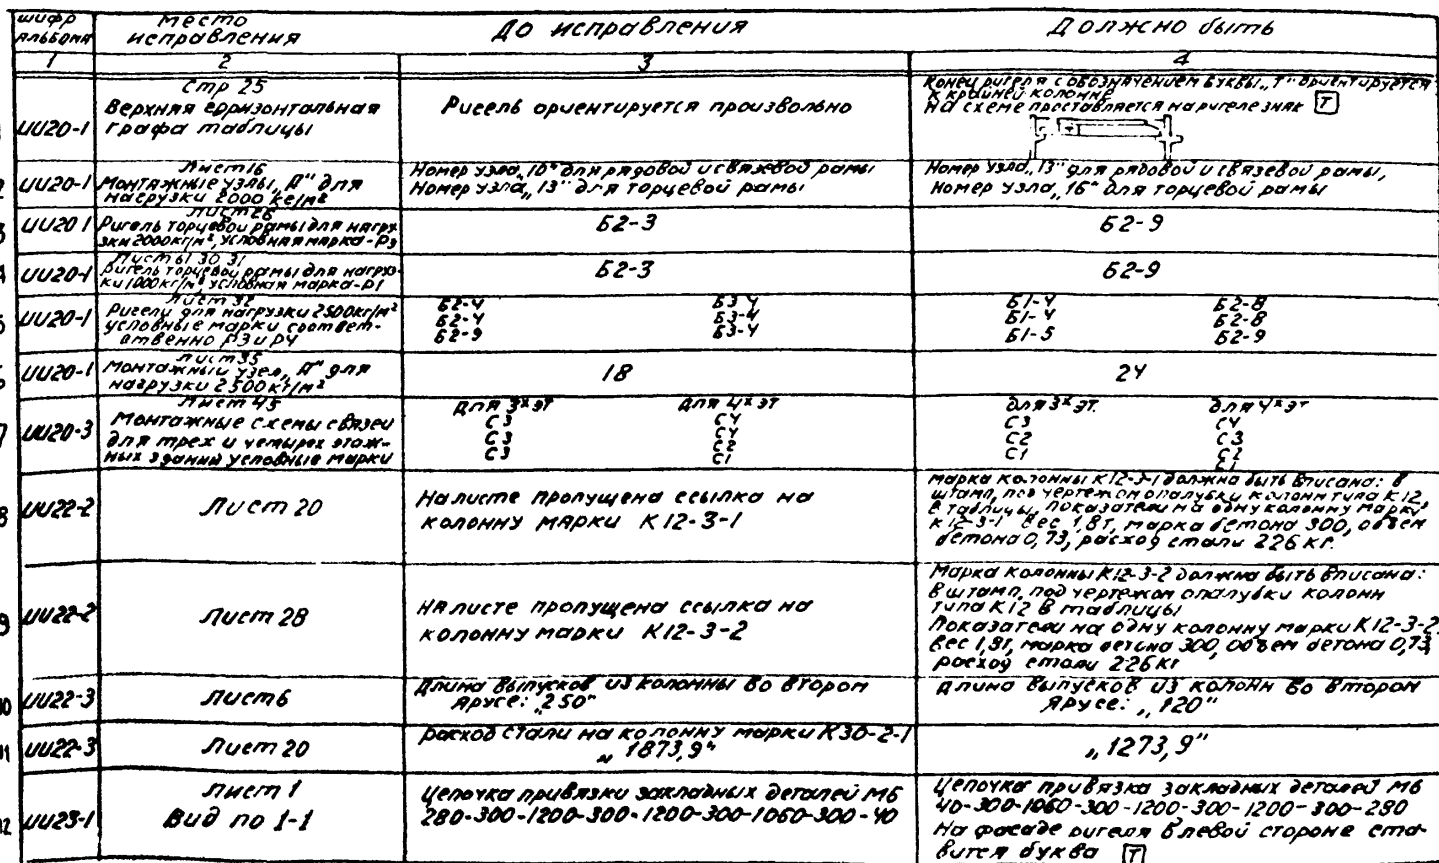 шифр альбома
Место исправления
До исправления
Должно быть
1
2
3
4
ИИ20-1
Стр 25
Верхняя горизонтальная
графа таблицы
Ригель ориентируется произвольно
Конец ригеля с обозначением буквы „Т" ориентируется
к крайней колонне
На схеме проставляется на ригеле знак Т
ИИ20-1
Лист 16
Монтажные узлы „А" для
нагрузки 2000 кг/м²
Номер узла „10" для рядовой и связевой рамы
Номер узла „13" для торцевой рамы
Номер узла „13" для рядовой и связевой рамы,
Номер узла „16" для торцевой рамы
3
ИИ20-1
Лист 26
Ригель торцевой рамы для нагру-
зки 2000кг/м², условная марка-Р3
Б2-3
Б2-9
4
ИИ20-1
Лист 61 30 31
Ригель торцевой рамы для нагруз-
ки 1000кг/м² условная марка-Р1
Б2-3
Б2-9
ИИ20-1
Лист 32
Ригели для нагрузки 2500кг/м²
условные марки соответ-
ственно Р3 и Р4
Б2-4 Б3-4
Б2-4 Б3-4
Б2-9 Б3-4
Б1-4 Б2-8
Б1-4 Б2-8
Б1-5 Б2-9
ИИ20-1
Лист 35
Монтажный узел „А" для
нагрузки 2500кг/м²
18
24
7
ИИ20-3
Лист 45
Монтажные схемы связей
для трех и четырех этаж-
ных зданий условные марки
для 3х эт для 4х эт
С3 С4
С3 С4
С3 С2
С1
для 3х эт. для 4х эт
С3 С4
С2 С3
С1 С2
С1
8
ИИ22-2
Лист 20
На листе пропущена ссылка на
колонну марки К12-3-1
Марка колонны К12-3-1 должна быть вписана: в
штамп, под чертежом опалубки колонн типа К12,
в таблицы, показатели на одну колонну марки
К12-3-1 вес 1,8т, марка бетона 300, объем
бетона 0,73, расход стали 226 кг.
9
ИИ22-2
Лист 28
На листе пропущена ссылка на
колонну марки К12-3-2
Марка колонны К12-3-2 должна быть вписана:
в штамп, под чертежом опалубки колонн
типа К12 в таблицы
Показатели на одну колонну марки К12-3-2,
вес 1,8т, марка бетона 300, объем бетона 0,73,
расход стали 226 кг
10
ИИ22-3
Лист 6
Длина выпусков из колонны во втором
ярусе: „250"
Длина выпусков из колонн во втором
ярусе: „120"
11
ИИ22-3
Лист 20
Расход стали на колонну марки К30-2-1
„1873,9"
„1273,9"
12
ИИ23-1
Лист 1
Вид по 1-1
Цепочка привязки закладных деталей М6
280-300-1200-300-1200-300-1060-300-40
Цепочка привязка закладных деталей М6
40-300-1060-300-1200-300-1200-300-280
На фасаде ригеля в левой стороне ста-
вится буква Т